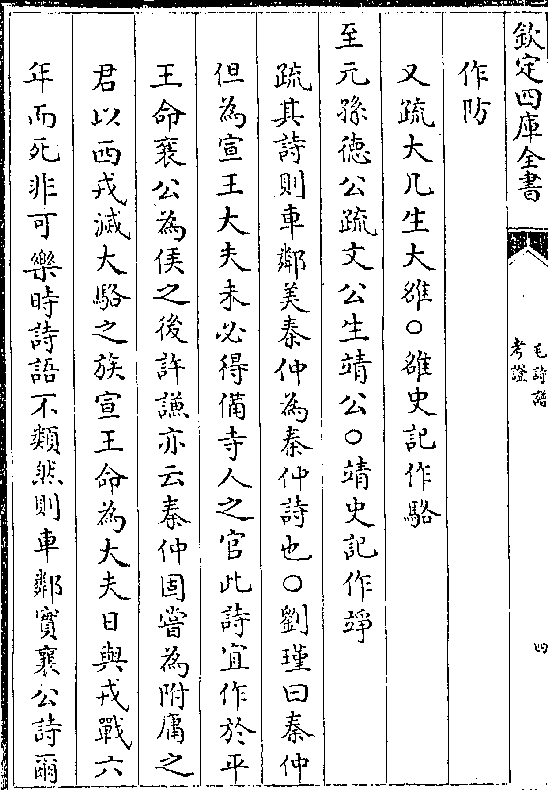 欽定四庫全書
毛詩譜
考證
四
作防
又疏大几生大雒○雒史記作駱
至元孫德公疏文公生靖公○靖史記作竫
疏其詩則車鄰美秦仲為秦仲詩也○劉瑾曰秦仲
但為宣王大夫未必得備寺人之官此詩宜作於平
王命襄公為侯之後許謙亦云秦仲固嘗為附庸之
君以西戎滅大駱之族宣王命為大夫日與戎戰六
年而死非可樂時詩語不類然則車鄰實襄公詩爾